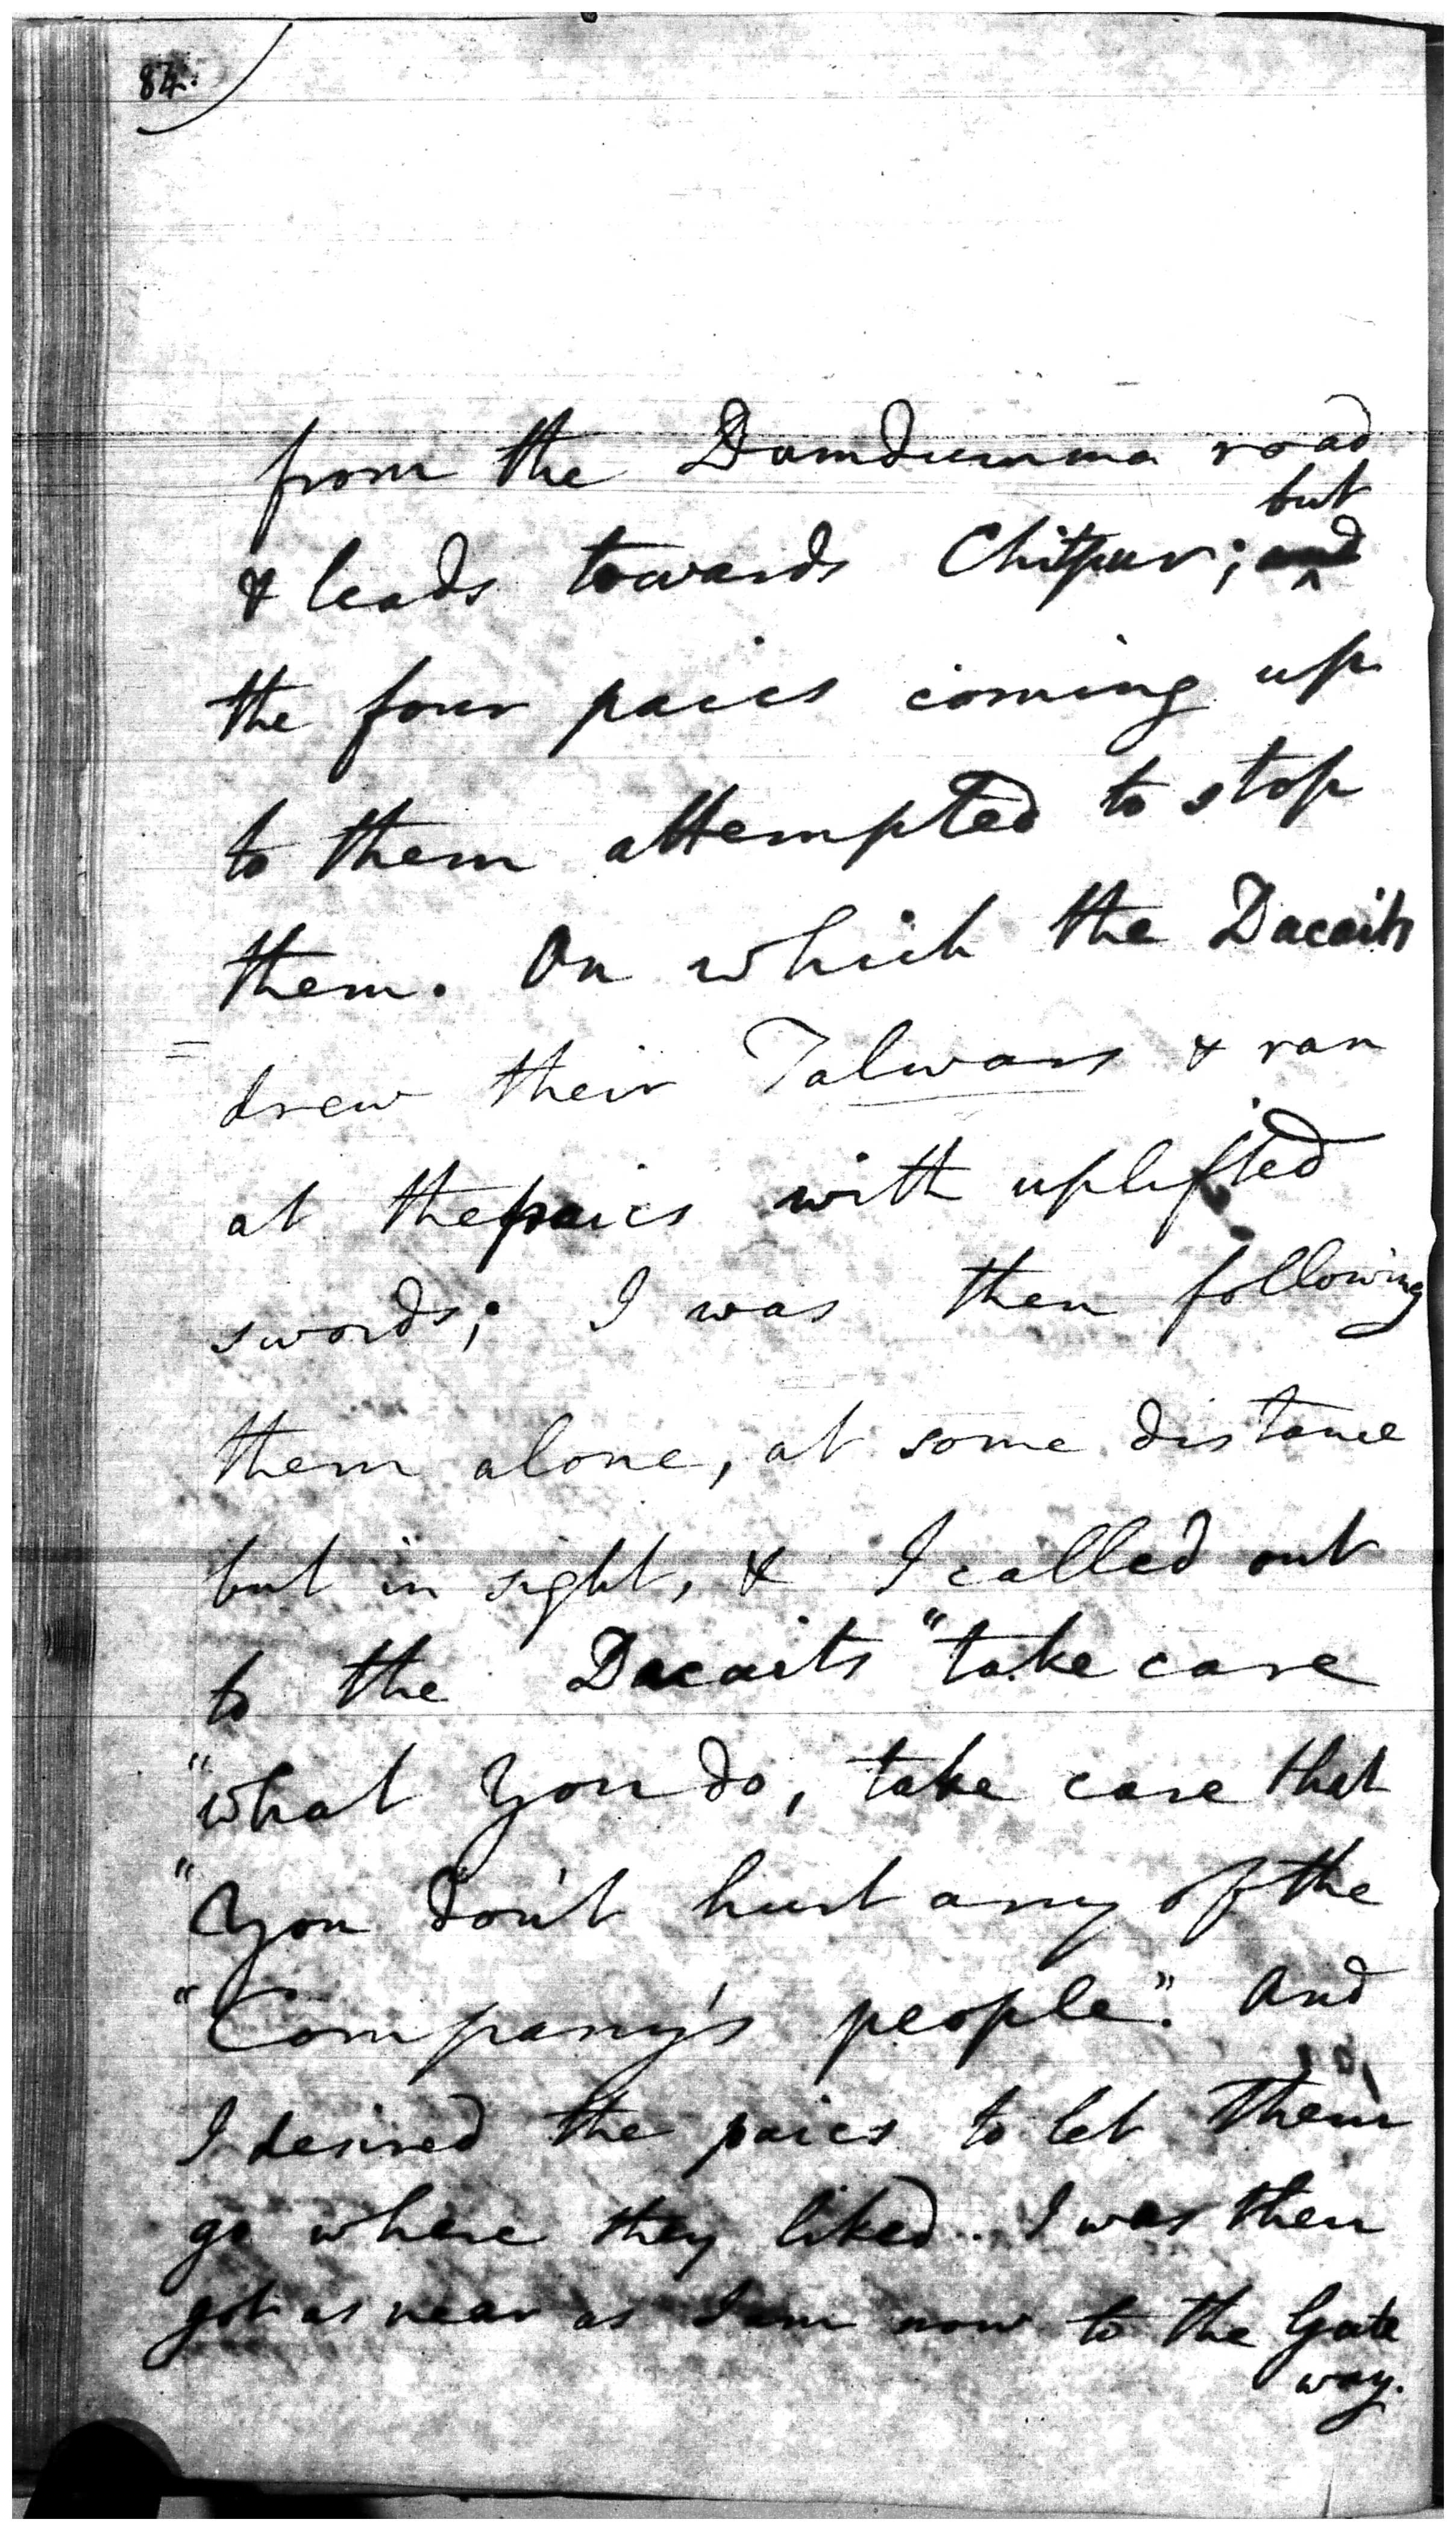 84.
from the Damdumma road
but
& leads towards Chitpur; and
the four paics coming up
to them attempted to stop
them. On which the Dacaits
drew their Talwars & ran
at the paics with uplifted
swords; I was then following
them alone, at some distance
but in sight, & I called out
to the Dacaits "take care
"what You do, take care that
"You don't hurt any of the
"Company's people." And
I desired the paics to let them
go where they liked. I was then
got as near as I am now to the Gate
way.